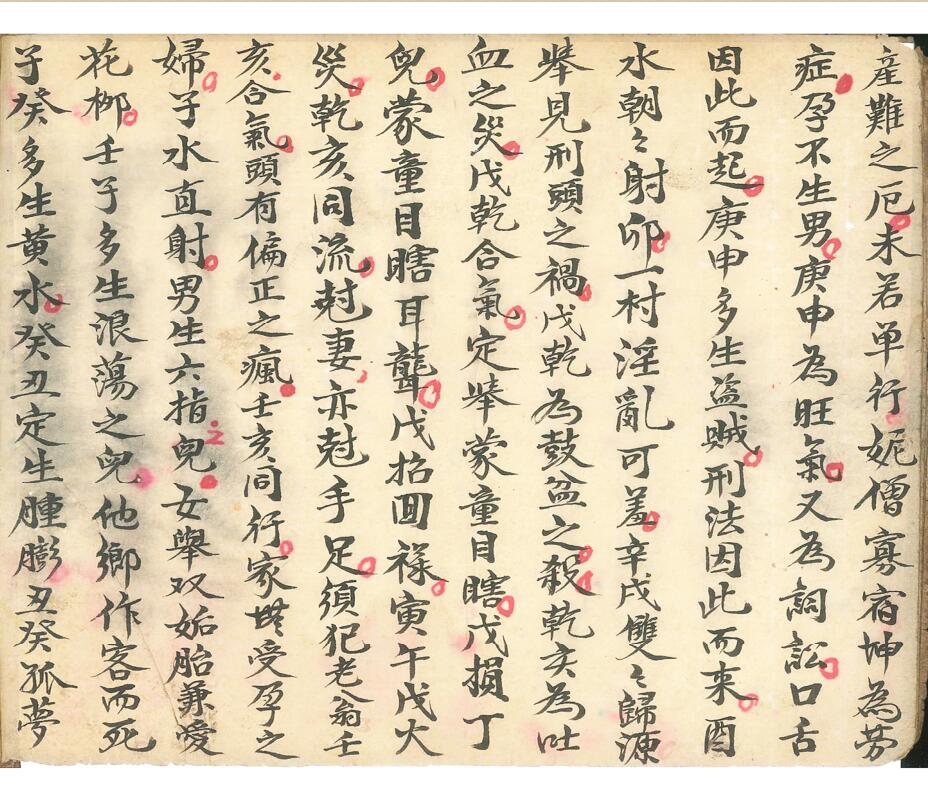 産難之厄未若单行妮僧寡宿坤為劳
症孕不生男庚申為旺氣又為詞訟口舌
因此而起庚申多生盜賊刑法因此而来酉
水朝々射卯一村淫亂可羞辛戌雙々歸源
犖見刑頭之禍戊乾為鼓盆之殺乾亥為吐
血之災戊乾合氣定犖蒙童目瞎戊損丁
兒蒙童目瞎耳聾戊招囬祿寅午戊火
災乾亥同流尅妻亦尅手足須犯老翁壬
亥合氣頭有偏正之瘋壬亥同行家受孕之
婦子水直射男生六指之兒女舉双姤胎兼愛
花柳壬子多生浪蕩之兒他鄉作客而死
子癸多生黄水癸丑定生腫膨丑癸孤夢